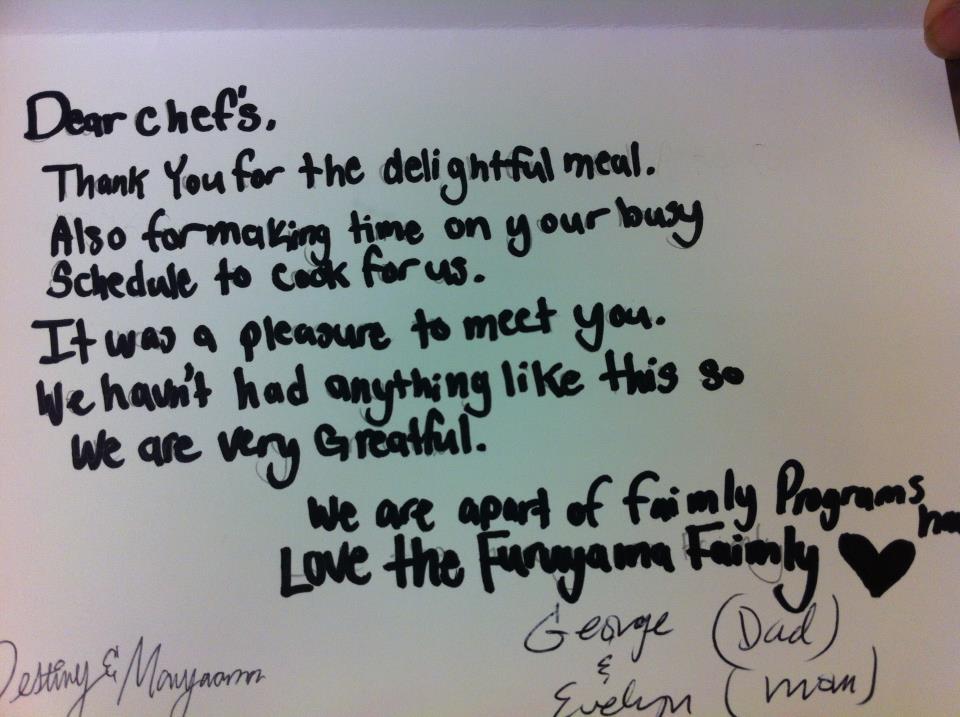 Dear chef's.
Thank You for the delightful meal.
Also for making time on your busy
Schedule to cook for us.
It was a pleasure to meet you.
We havn't had anything like this so
We are very Greatful.
We are apart of faimly Programs
Love the Furuyama Faimly ♥
George (Dad)
&
Evelyn (mom)
Destiny &